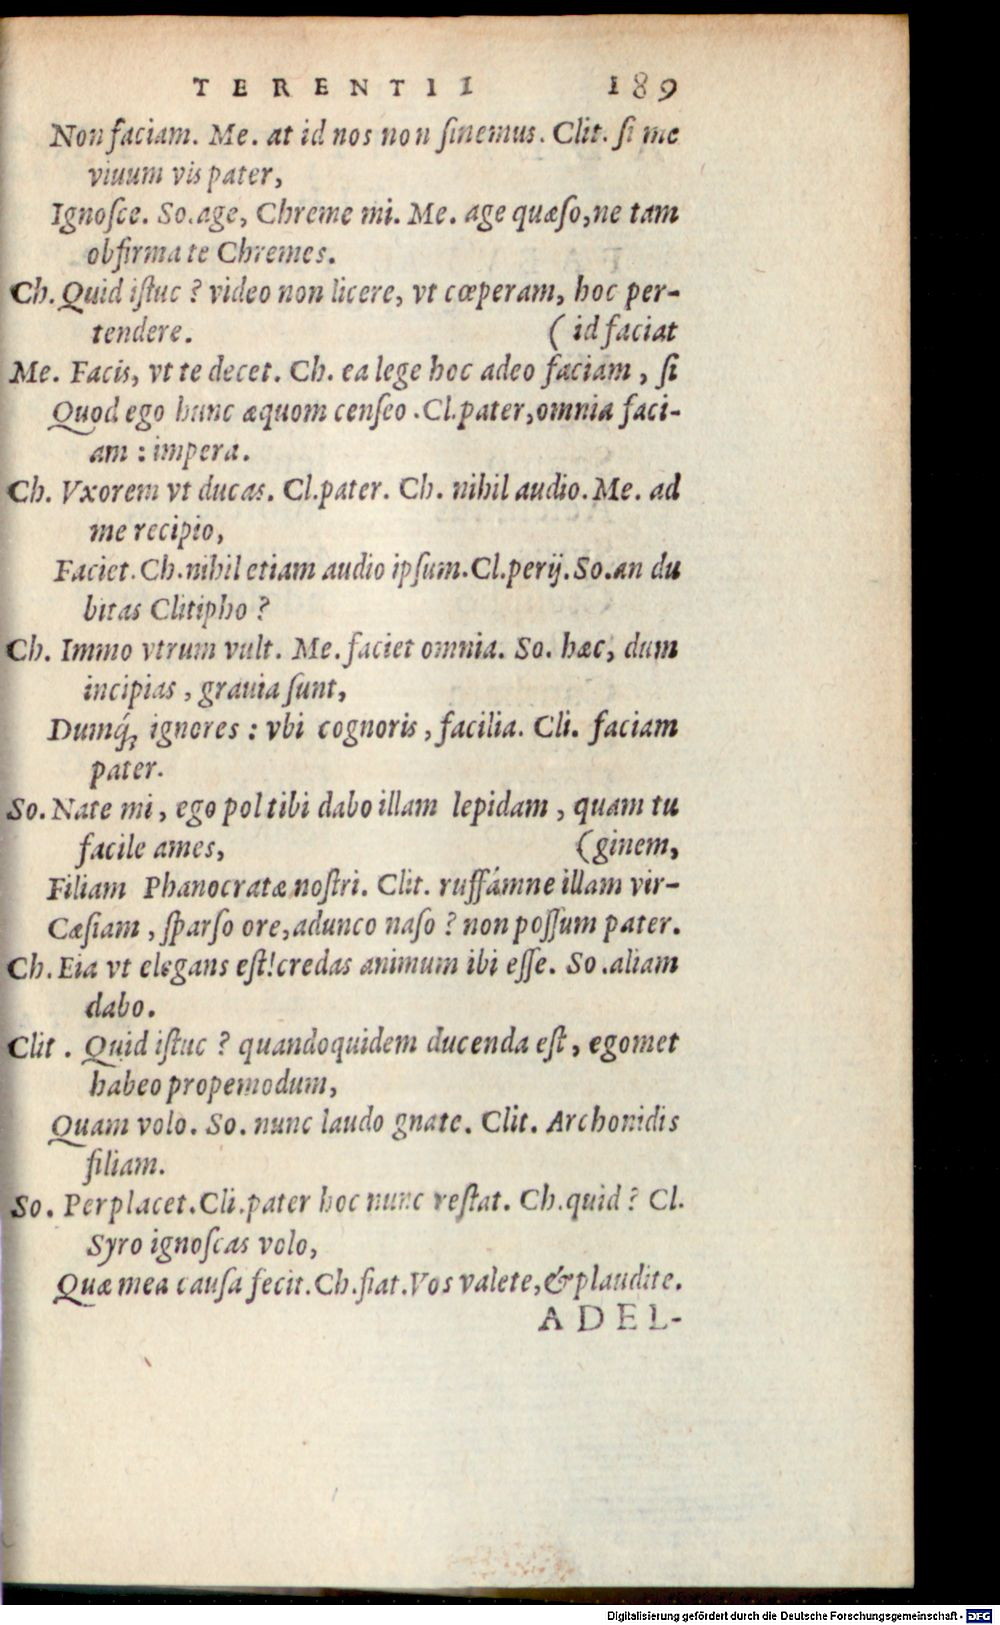 TERENTII 189
Non faciam. Me. at id nos non ſinemus. Clit. ſi me
viuum vis pater,
Ignoſce. So. age, Chreme mi. Me. age quæſo, ne tam
obfirma te Chremes.
Ch. Quid iſtuc ? video non licere, vt cœperam, hoc per-
tendere. ( id faciat
Me. Facis, vt te decet. Ch. ea lege hoc adeo faciam , ſi
Quod ego hunc æquom cenſeo . Cl. pater, omnia faci-
am : impera.
Ch. Vxorem vt ducas. Cl. pater. Ch. nihil audio. Me. ad
me recipio,
Faciet. Ch. nihil etiam audio ipſum. Cl. perij. So. an du
bitas Clitipho ?
Ch. Immo vtrum vult. Me. faciet omnia. So. hæc, dum
incipias , grauia ſunt,
Dumq́; ignores : vbi cognoris , facilia. Cli. faciam
pater.
So. Nate mi , ego pol tibi dabo illam lepidam , quam tu
facile ames, (ginem,
Filiam Phanocratæ noſtri. Clit. ruffámne illam vir-
Cæſiam , ſparſo ore, adunco naſo ? non poſſum pater.
Ch. Eia vt elegans eſt! credas animum ibi eſſe. So. aliam
dabo.
Clit . Quid iſtuc ? quandoquidem ducenda eſt , egomet
habeo propemodum,
Quam volo. So. nunc laudo gnate. Clit. Archonidis
filiam.
So. Perplacet. Cli. pater hoc nunc reſtat. Ch. quid ? Cl.
Syro ignoſcas volo,
Quæ mea cauſa fecit. Ch. fiat. Vos valete, & plaudite.
ADEL-
Digitalisierung gefördert durch die Deutsche Forschungsgemeinschaft - DFG